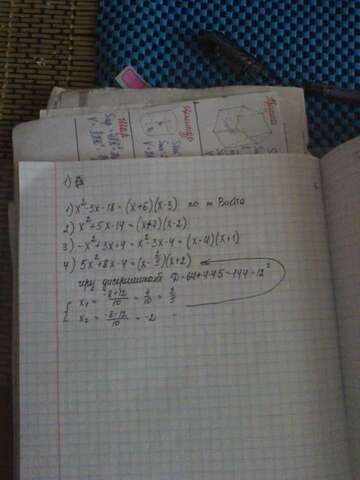 Призма
Цилиндр
Шар
1)
1) x²-3x-18 = (x+6)(x-3) по т Виета
2) x²+5x-14 = (x+7)(x-2)
3) -x²+3x+4 = x²-3x-4 = (x-4)(x+1)
4) 5x²+8x-4 = (x-2/5)(x+2)
через дискриминант D=64+4·4·5=144=12²
x₁ = -8+12/10 = 4/10 = 2/5
x₂ = -8-12/10 = -2